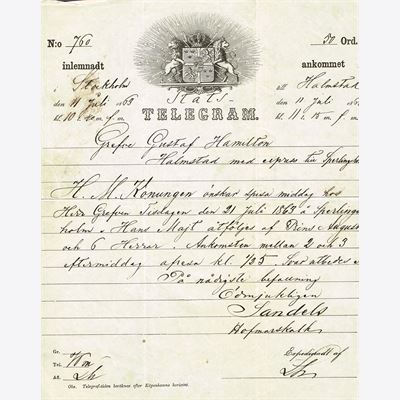 N:o 760
50 Ord.
inlemnadt
ankommet
i Stockholm
till Halmstad
den 11 Juli 1863
den 11 Juli 1863
kl. 10 f. m.
kl. 11 : 15 m. f. m.
Stats-
TELEGRAM.
Grefve Gustaf Hamilton
Halmstad med express till Sperlingsholm
H. M. Konungen önskar spisa middag hos
Herr Grefven Tisdagen den 21 Juli 1863 å Sperlings
holm. Hans Majt åtföljes af Prins August
och 6 Herrar. Ankomsten mellan 2 och 3
eftermiddag afresa kl. 725. Svar utbedes
På nådigste befallning
Ödmjukligen
Sandels
Hofmarskalk
Gr.
Tel.
Af.
Expedieradt af
Obs. Telegraftiden beräknas efter Köpenhamns horizont.